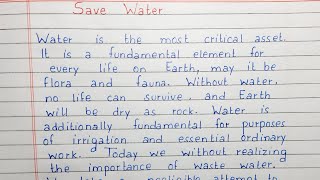 Save Water
Water is the most critical asset.
It is a fundamental element for
every life on Earth, may it be
flora and fauna. Without water,
no life can survive. and Earth
will be dry as rock. Water is
additionally fundamental for purposes
of irrigation and essential ordinary
work. Today we without realizing
the importance of waste water.
negligible attempt to